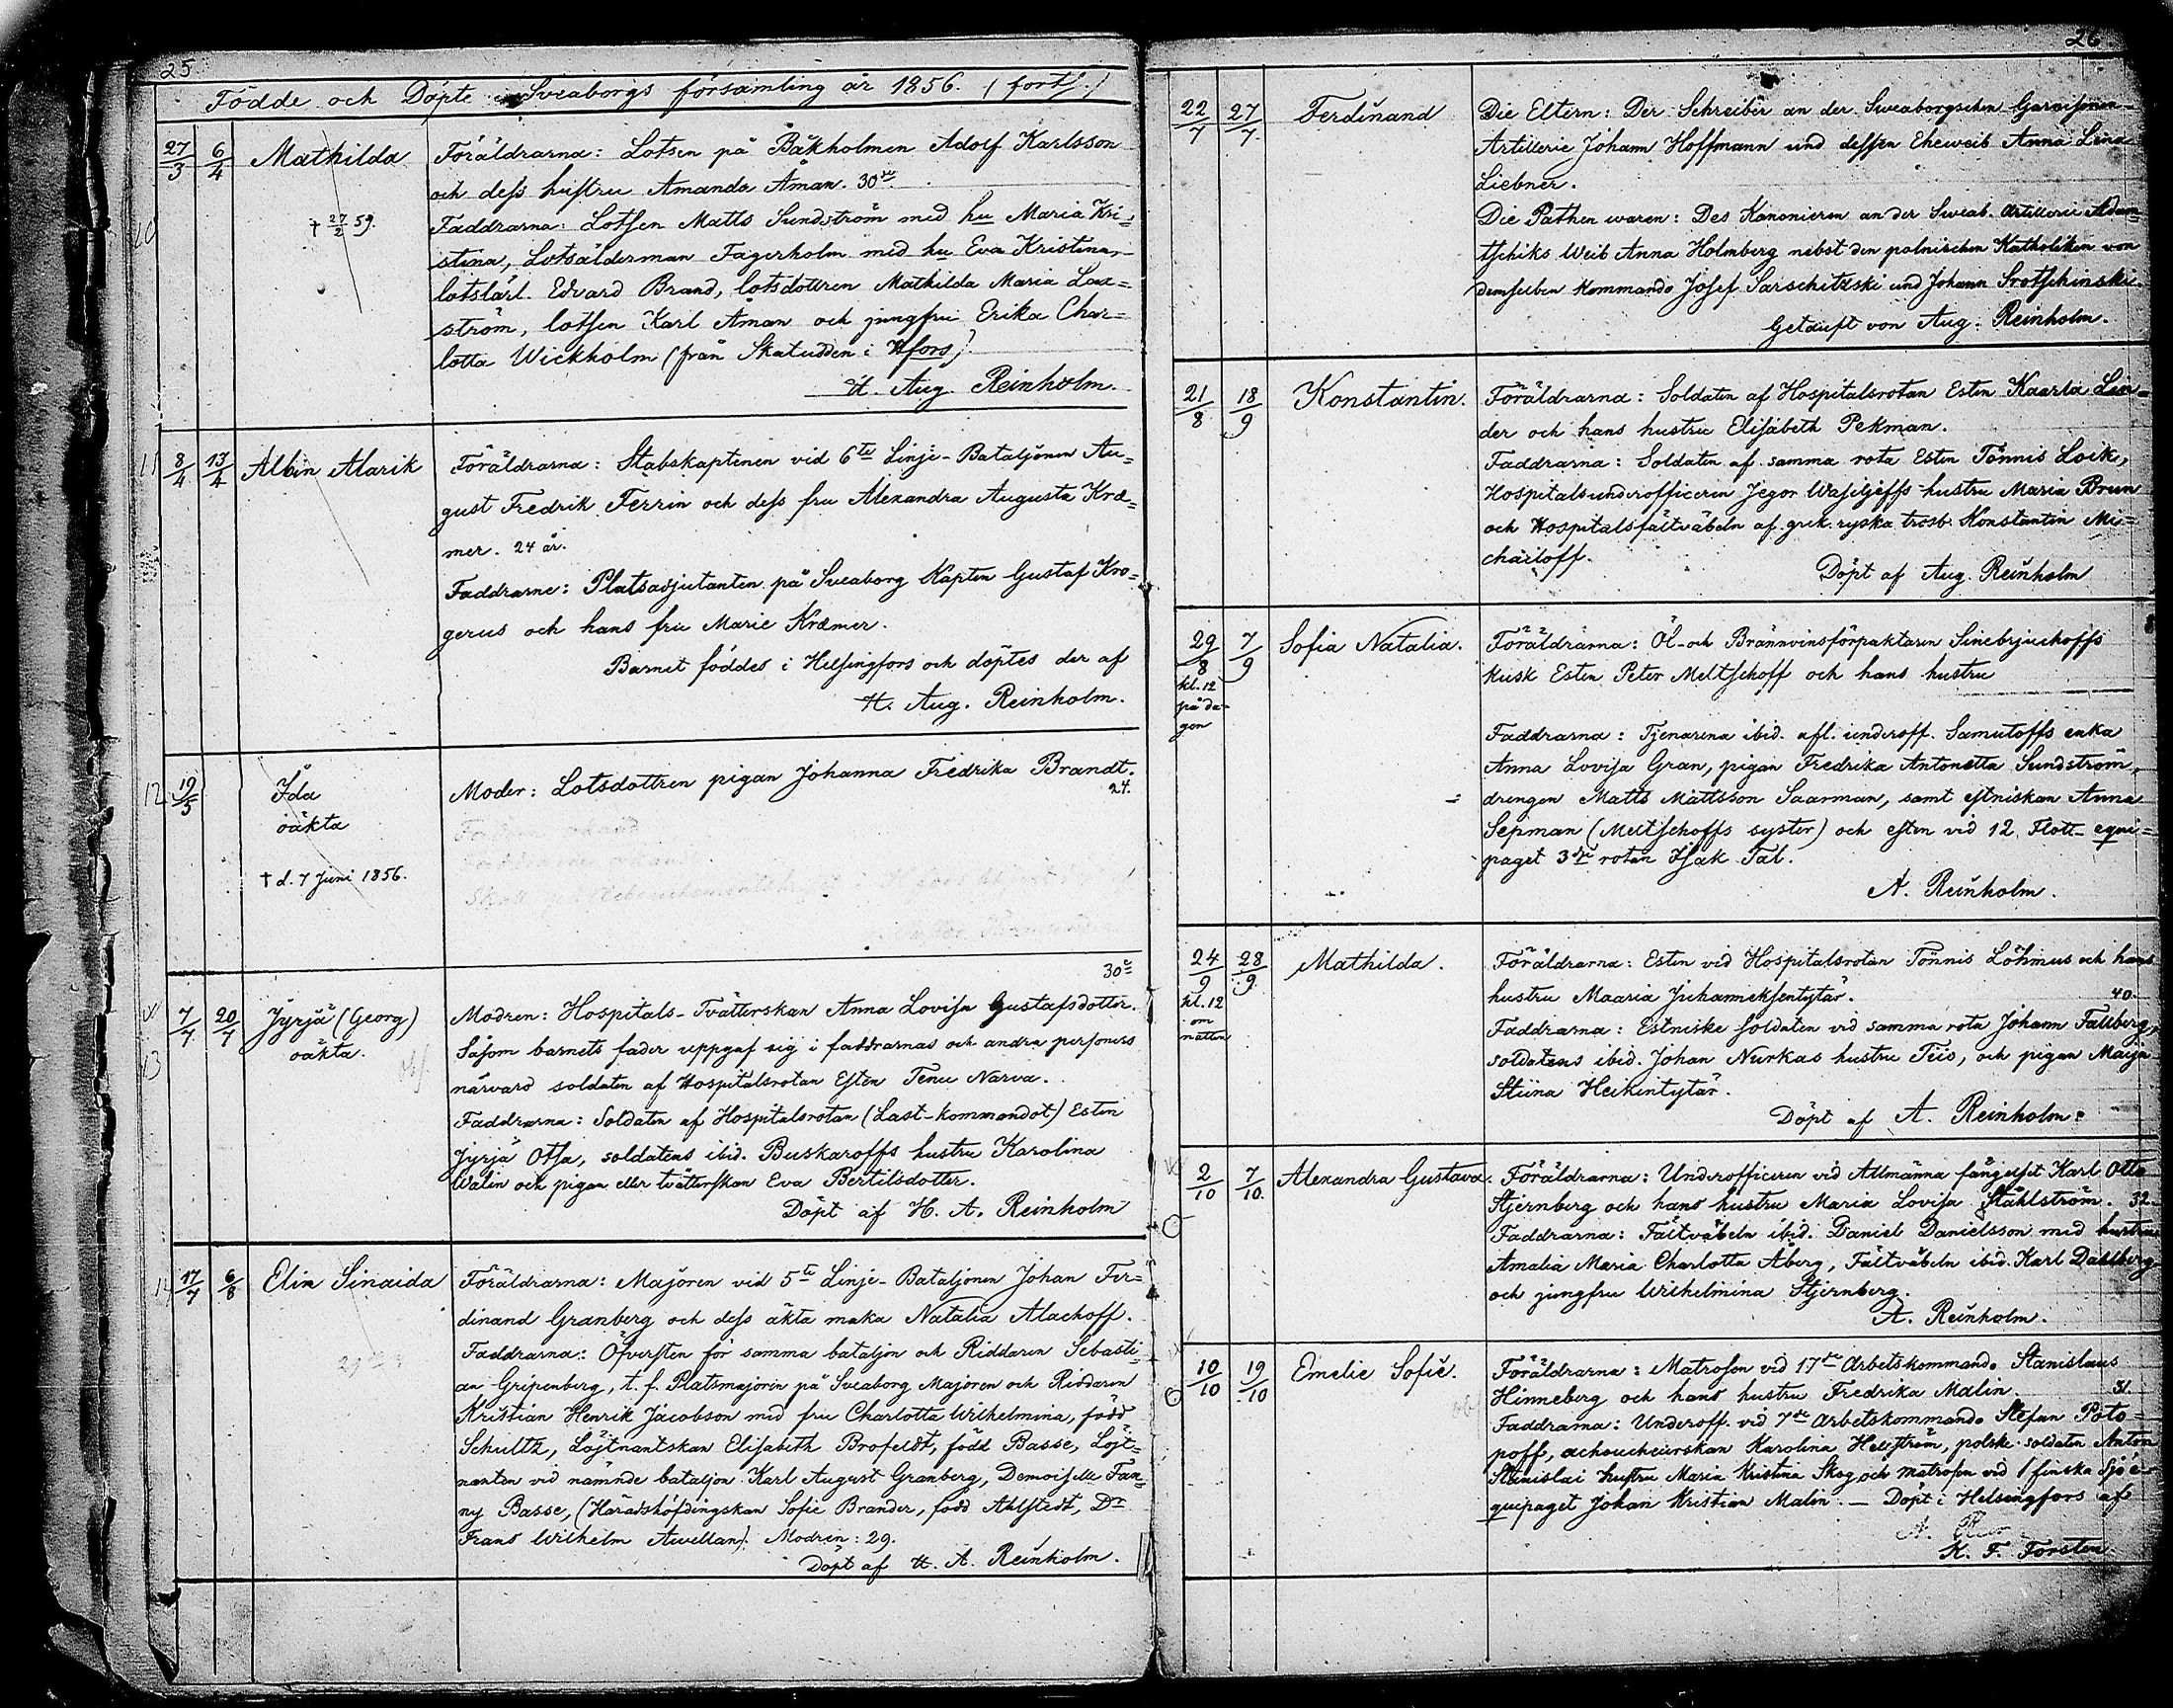 25
Födde och Döpte i Sveaborgs församling år 1856. (forts.)
27/3 6/4 Mathilda
† 27/2 59.
Föräldrarna: Lotsen på Båkholmen Adolf Karlsson
och dess hustru Amanda Åman. 30de
Faddrarna: Lotsen Matts Sundström med hu Maria Kri=
stina, Lotsålderman Fagerholm med hu Eva Kristina,
lotslärl. Edvard Brand, lotsdottren Mathilda Maria Lax=
ström, lotsen Karl Åman och jungfru Erika Char=
lotta Wickholm (från Skatudden i Hfors).
H. Aug. Reinholm.
11 8/4 13/4 Albin Alarik
Föräldrarna: Stabskaptenen vid 6te Linje-Bataljonen Au=
gust Fredrik Ferrin och dess fru Alexandra Augusta Kræ=
mer. 24 år.
Faddrarne: Platsadjutanten på Sveaborg Kapten Gustaf Kro=
gerus och hans fru Marie Kræmer.
Barnet föddes i Helsingfors och döptes der af
H. Aug. Reinholm.
12 19/5 Ida
oäkta
† d. 7 Juni 1856.
Moder: Lotsdottren pigan Johanna Fredrika Brandt.
24.
30e
13 7/7 20/7 Jyrjä (Georg)
oäkta.
Modren: Hospitals-Tvätterskan Anna Lovisa Gustafsdotter.
Såsom barnets fader uppgaf sig i faddrarnas och andra personers
närvaro soldaten af Hospitalsrotan Esten Tenu Narva.
Faddrarna: Soldaten af Hospitalsrotan (Last-kommandot) Esten
Jyrjä Otsa, soldatens ibid. Buskaroffs hustru Karolina
Walin och pigan eller tvätterskan Eva Bertilsdotter.
Döpt af H. A. Reinholm
14 17/7 6/8 Elin Sinaida
Föräldrarna: Majoren vid 5te Linje-Bataljonen Johan Fer=
dinand Granberg och dess äkta maka Natalia Alachoff.
Faddrarna: Öfversten för samma bataljon och Riddaren Sebasti=
an Gripenberg, t. f. Platsmajoren på Sveaborg Majoren och Riddaren
Kristian Henrik Jacobson med fru Charlotta Wilhelmina, född
Schultz, Löjtnantskan Elisabeth Brofeldt, född Basse, Löjt=
nanten vid nämnde bataljon Karl August Granberg, Demoiselle Fan=
ny Basse, (Häradshöfdingskan Sofie Brander, född Ahlstedt, Dr
Frans Wilhelm Awellan). Modren: 29.
Döpt af H. A. Reinholm.
26
22/7 27/7 Ferdinand
Die Eltern: Der Schreiber an der Sweaborgschen Garnisonen-
Artillerie Johann Hoffmann und dessen Eheweib Anna Lena
Liebner.
Die Pathen waren: Des Kanonieren an der Sweab. Artillerie Adam=
tschiks Weib Anna Holmberg nebst den polnischen Katholiken von
demselben Kommando Josef Sarschitzski und Johann Srotschinski.
Getauft von Aug. Reinholm.
21/8 18/9 Konstantin.
Föräldrarna: Soldaten af Hospitalsrotan Esten Kaarla Lin=
der och hans hustru Elisabeth Pekman.
Faddrarna: Soldaten af samma rota Esten Tönnis Loik,
Hospitalsunderofficeren Jegor Wasiljeffs hustru Maria Brun
och Hospitalsfältväbeln af grek. ryska trosb. Konstantin Mi=
chailoff.
Döpt af Aug. Reinholm
29/8 7/9 Sofia Natalia.
kl. 12
på da-
gen
Föräldrarna: Öl- och Brännvinsförpaktaren Sinebrjuchoffs
kusk Esten Peter Meltschoff och hans hustru
Faddrarna: Tjenarena ibid. afl. underoff. Samutoffs enka
Anna Lovisa Gran, pigan Fredrika Antonetta Sundström,
drengen Matts Mattsson Saarman, samt estniskan Anna
Sepman (Meltschoffs syster) och esten vid 12 Flott-equi=
paget 3dje rotan Isak Tal.
A. Reinholm.
24/9 28/9 Mathilda.
kl. 12
om
natten
Föräldrarna: Esten vid Hospitalsrotan Tönnis Löhmus och hans
hustru Maaria Juhanneksentytär.
40.
Faddrarna: Estniske soldaten vid samma rota Johann Fallberg,
soldatens ibid. Johan Nurkas hustru Tiio, och pigan Maija
Stiina Heikintytär.
Döpt af A. Reinholm.
2/10 7/10. Alexandra Gustava.
Föräldrarna: Underofficeren vid Allmänna fängelset Karl Otto
Stjernberg och hans hustru Maria Lovisa Ståhlström. 32.
Faddrarna: Fältväbeln ibid. Daniel Danielsson med hustru
Amalia Maria Charlotta Åberg, Fältväbeln ibid. Karl Dahlberg
och jungfru Wilhelmina Stjernberg.
A. Reinholm.
10/10 19/10 Emelie Sofie.
Föräldrarna: Matrosen vid 17de Arbetskommando Stanislaus
Hinneberg och hans hustru Fredrika Malin.
31.
Faddrarna: Underoff. vid 7de Arbetskommando Stefan Poto=
poff, achoucheurskan Karolina Hellström, polske soldaten Anton
Stanislai hustru Maria Kristina Skog och matrosen vid 1 finska Sjöe-
quipaget Johan Kristian Malin. — Döpt i Helsingfors af
K. F. Forsten.